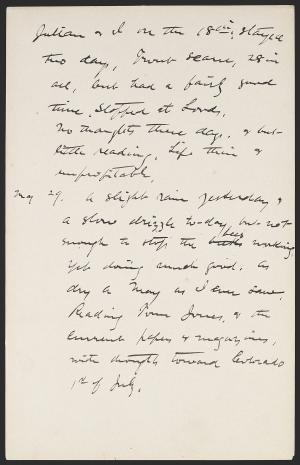 Julian & I on the 18th, stayed
two days, Trout scarce, 28 in
all, but had a fairly good
time, Stopped at Coods.
No thoughts these days, & but
little reading, Life thin &
unprofitable.
May 29. A slight rain yesterday &
a slow drizzle to-day, but not
enough to stop the bees working,
yet doing much good. As
dry a May as I ever saw.
Reading Tom Jones, & the
current papers & magazines,
with thoughts toward Colorado
1st of July.